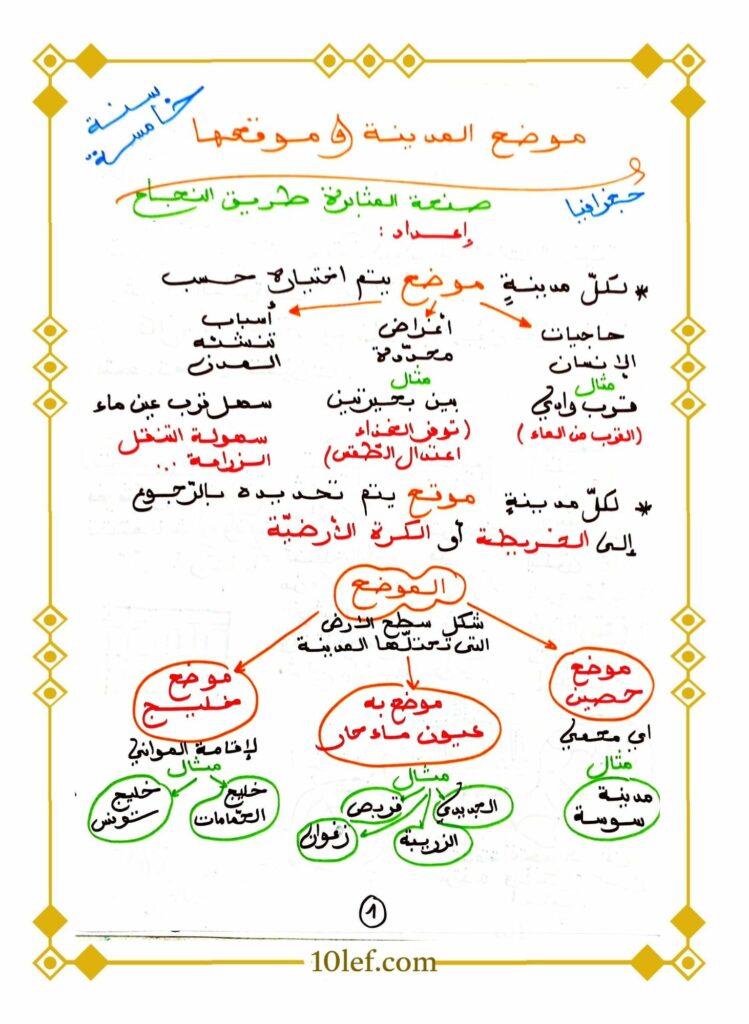 سنة
خامسة
موضع المدينة و موقعها
جغرافيا
صفحة المثابرة طريق النجاح
إعداد :
* لكلّ مدينةٍ موضع يتم اختياره حسب
حاجيات الإنسان
مثال
قرب وادي
(القرب من الماء)
أغراض محدّدة
مثال
بين بحيرتين
(توفر الغذاء
اعتدال الطّقس)
أسباب تنشئه المدن
سهل قرب عين ماء
سهولة التنقل
الزراعة ...
* لكلّ مدينةٍ موقع يتم تحديده بالرّجوع
إلى الخريطة أو الكرة الأرضيّة
الموضع
شكل سطح الأرض
التي تحتلّها المدينة
موضع حصين
اي محمي
مثال
مدينة سوسة
موضع به
عيون ماء حار
مثال
الجديدي
قربص
الزريبة
زغوان
موضع خليج
لإقامة الموانئ
مثال
خليج الحمّامات
خليج تونس
1
10lef.com